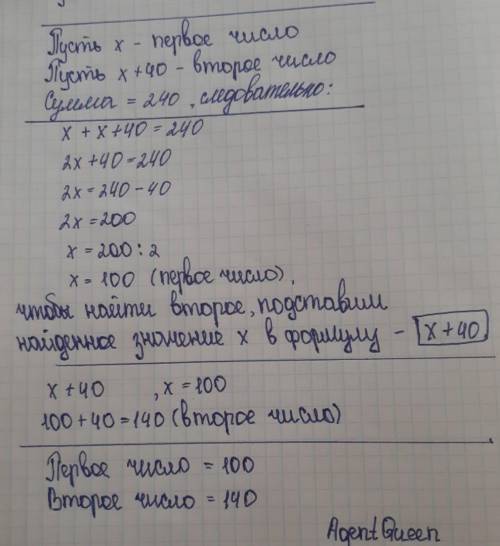 Пусть x - первое число
Пусть x+40 - второе число
Сумма = 240, следовательно:
x + x + 40 = 240
2x + 40 = 240
2x = 240 - 40
2x = 200
x = 200 : 2
x = 100 (первое число),
чтобы найти второе, подставим
найденное значение x в формулу - x + 40
x + 40 , x = 100
100 + 40 = 140 (второе число)
Первое число = 100
Второе число = 140
AgentQueen